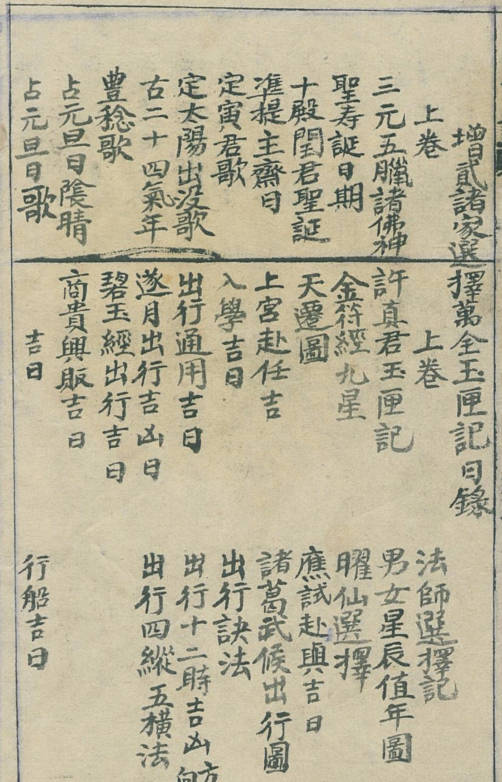 增貳諸家選擇萬全玉匣記目錄
上卷
上卷
法師選擇記
三元五臘諸佛神
許真君玉匣記
男女星辰值年圖
聖寿誕日期
金符經九星
曜仙選擇
十殿閏君聖誕
天遷圖
應試赴與吉日
準提主齋日
上宮赴任吉
諸葛武候出行圖
定寅君歌
入學吉日
出行訣法
定太陽出没歌
出行通用吉日
出行十二時吉凶方
古二十四氣年
遂月出行吉凶日
出行四縱五橫法
豊稔歌
碧玉經出行吉日
占元旦日陰晴
商貴興販吉日
占元旦日歌
吉日
行船吉日